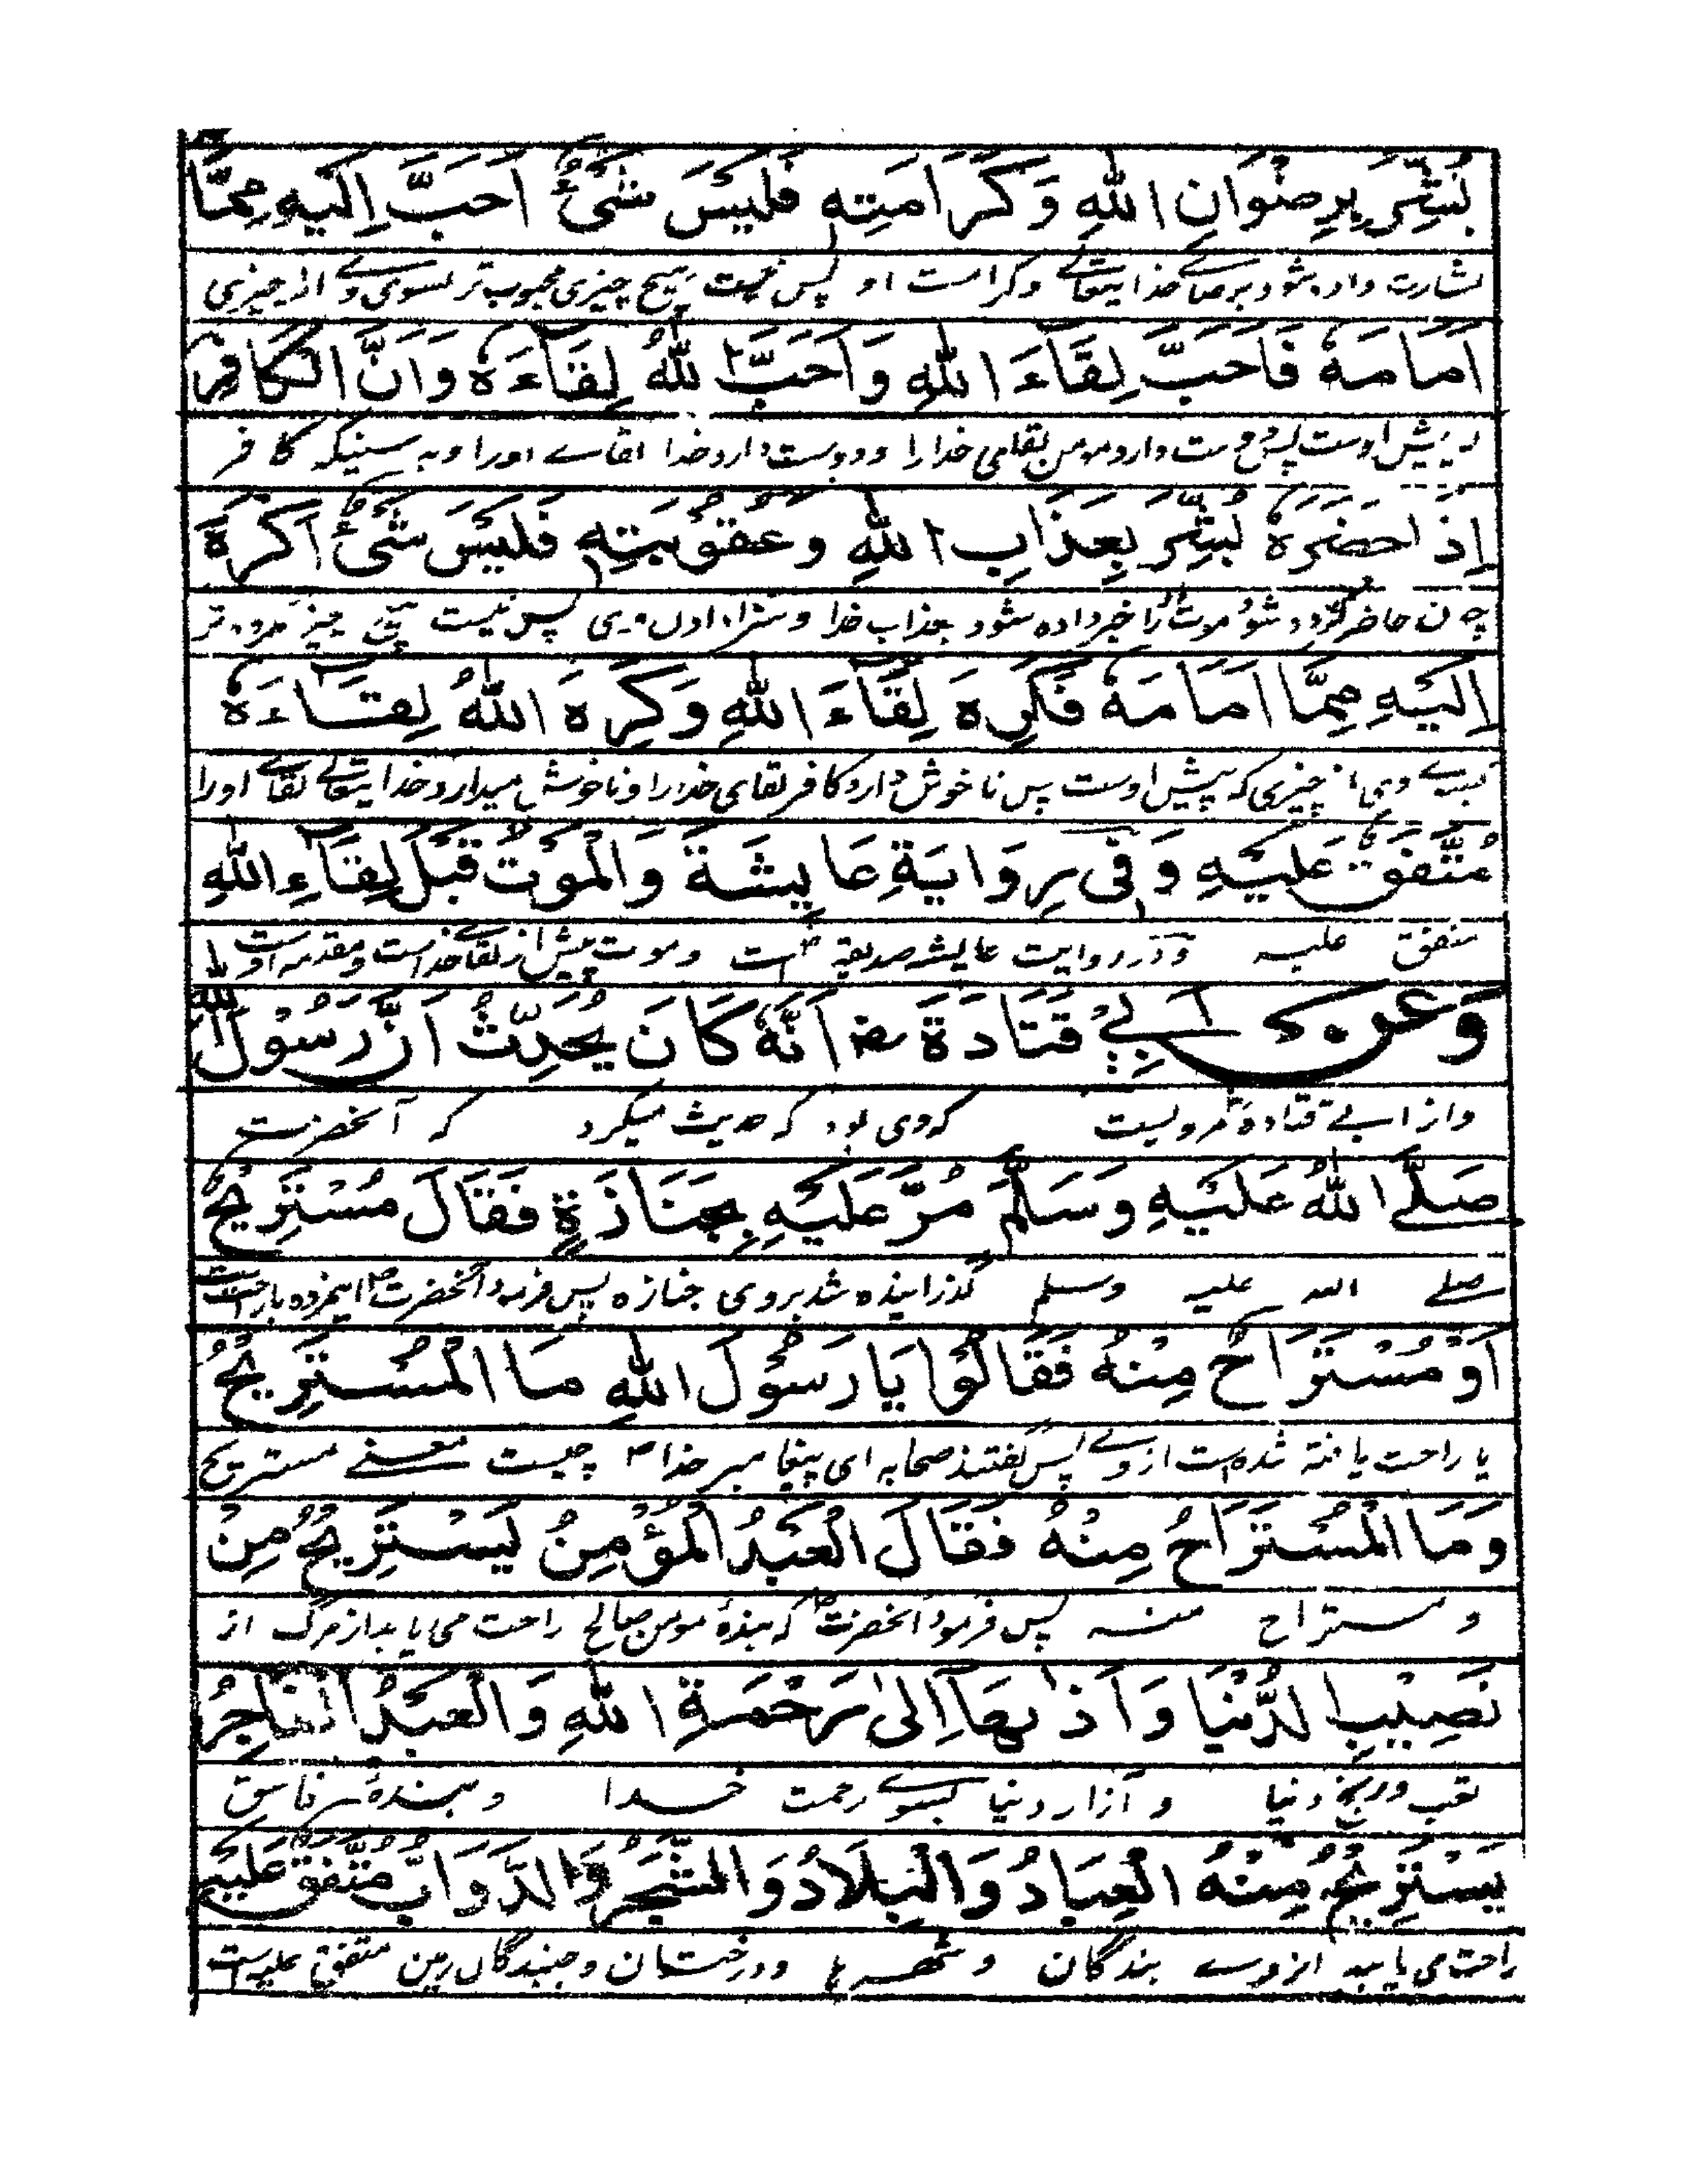 بُشِّرَ بِرِضْوَانِ اللهِ وَكَرَامَتِهِ فَلَيْسَ شَيْءٌ اَحَبَّ اِلَيْهِ مِمَّا
بشارت داده شود برضای خدایتعالے وکرامت او پس نیست ہیچ چیزی محبوب تر بسوی وے از چیزی
اَمَامَهٗ فَاَحَبَّ لِقَاءَ اللهِ وَاَحَبَّ اللهُ لِقَاءَهٗ وَاَنَّ الْكَافِرَ
پیش اوست پس دوست دارد مومن لقای خدا را ودوست دارد خدا لقاے اورا وبہ کافر
اِذَا حَضَرَهٗ بُشِّرَ بِعَذَابِ اللهِ وَعُقُوْبَتِهِ فَلَيْسَ شَيْءٌ اَكْرَهَ
چون حاضر شود موت را خبر داده شود بعذاب خدا پس نیست چیز تر
اِلَيْهِ مِمَّا اَمَامَهٗ فَكَرِهَ لِقَاءَ اللهِ وَكَرِهَ اللهُ لِقَاءَهٗ
بسوے وی از چیزی که پیش اوست پس ناخوش دارد کافر لقای خدا را وناخوش میدارد خدایتعالے لقاے اورا
مُتَّفَقٌ عَلَيْهِ وَفِيْ رِوَايَةِ عَايِشَةَ وَالْمَوْتُ قَبْلَ لِقَاءِ اللهِ
متفق علیہ ودر روایت عایشہ صدیقہ است وموت پیش از لقاے خداست ومقدمہ اوست
وَعَنْ اَبِيْ قَتَادَةَ رض اَنَّهٗ كَانَ يُحَدِّثُ اَنَّ رَسُوْلَ اللهِ
واز ابی قتادہ مرویست که وی بود که حدیث میکرد که آنحضرت
صَلَّى اللهُ عَلَيْهِ وَسَلَّمَ مُرَّ عَلَيْهِ بِجَنَازَةٍ فَقَالَ مُسْتَرِيْحٌ
صلے اللہ علیہ وسلم گذرانیده شد بروی جنازه پس فرمود آنحضرت
اَوْ مُسْتَرَاحٌ مِنْهُ فَقَالُوْا يَا رَسُوْلَ اللهِ مَا الْمُسْتَرِيْحُ
یا راحت یافته شده است از وے پس گفتند صحابہ ای پیغامبر خدا چیست معنے مستریح
وَمَا الْمُسْتَرَاحُ مِنْهُ فَقَالَ الْعَبْدُ الْمُؤْمِنُ يَسْتَرِيْحُ مِنْ
و مستراح منہ پس فرمود آنحضرت کہ بندۂ مومن صالح راحت می یابد از مرگ از
نَصِيْبِ الدُّنْيَا وَاَذَاهَا اِلٰى رَحْمَةِ اللهِ وَالْعَبْدُ الْفَاجِرُ
تعب ورنج دنیا و آزار دنیا بسوے رحمت خدا و بندۂ فاسق
يَسْتَرِيْحُ مِنْهُ الْعِبَادُ وَالْبِلَادُ وَالشَّجَرُ وَالدَّوَابُّ مُتَّفَقٌ عَلَيْهِ
راحت می یابد از وے بندگان و شهرها ودرختان وجنبدگان زمین متفق علیہ است